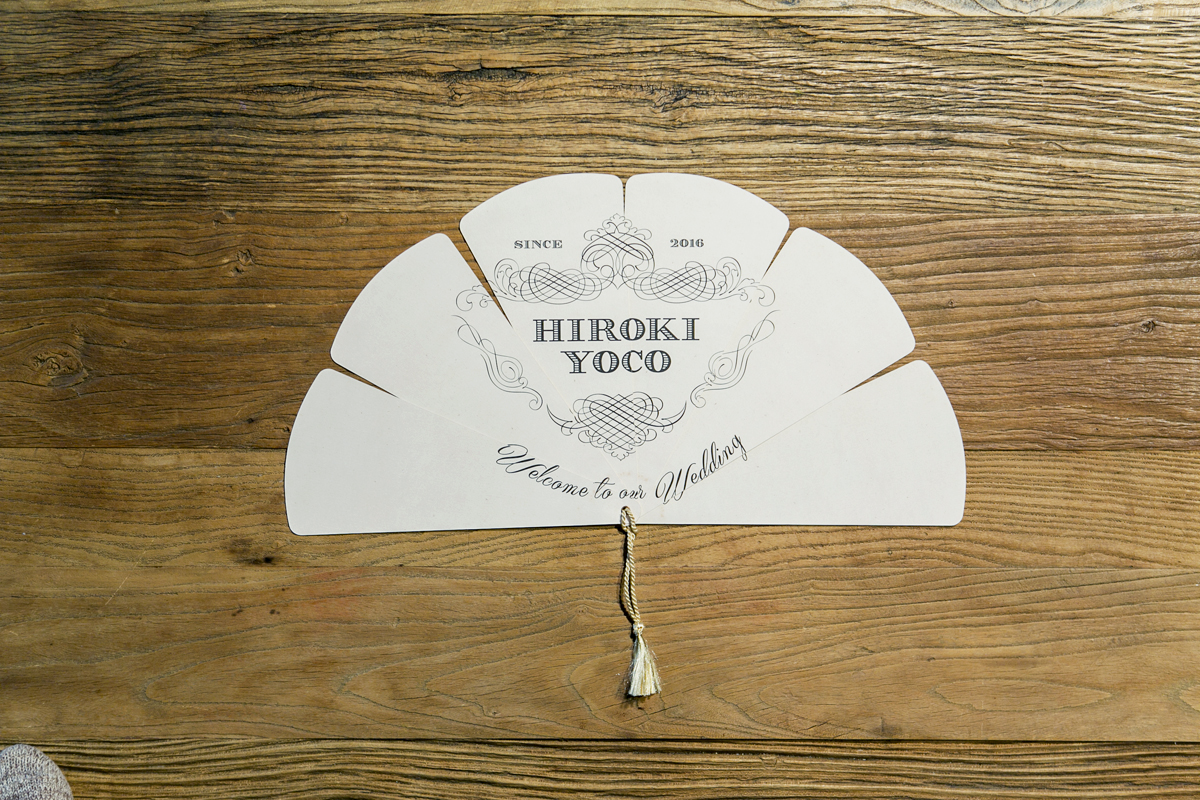 SINCE 2016
HIROKI
YOCO
Welcome to our Wedding